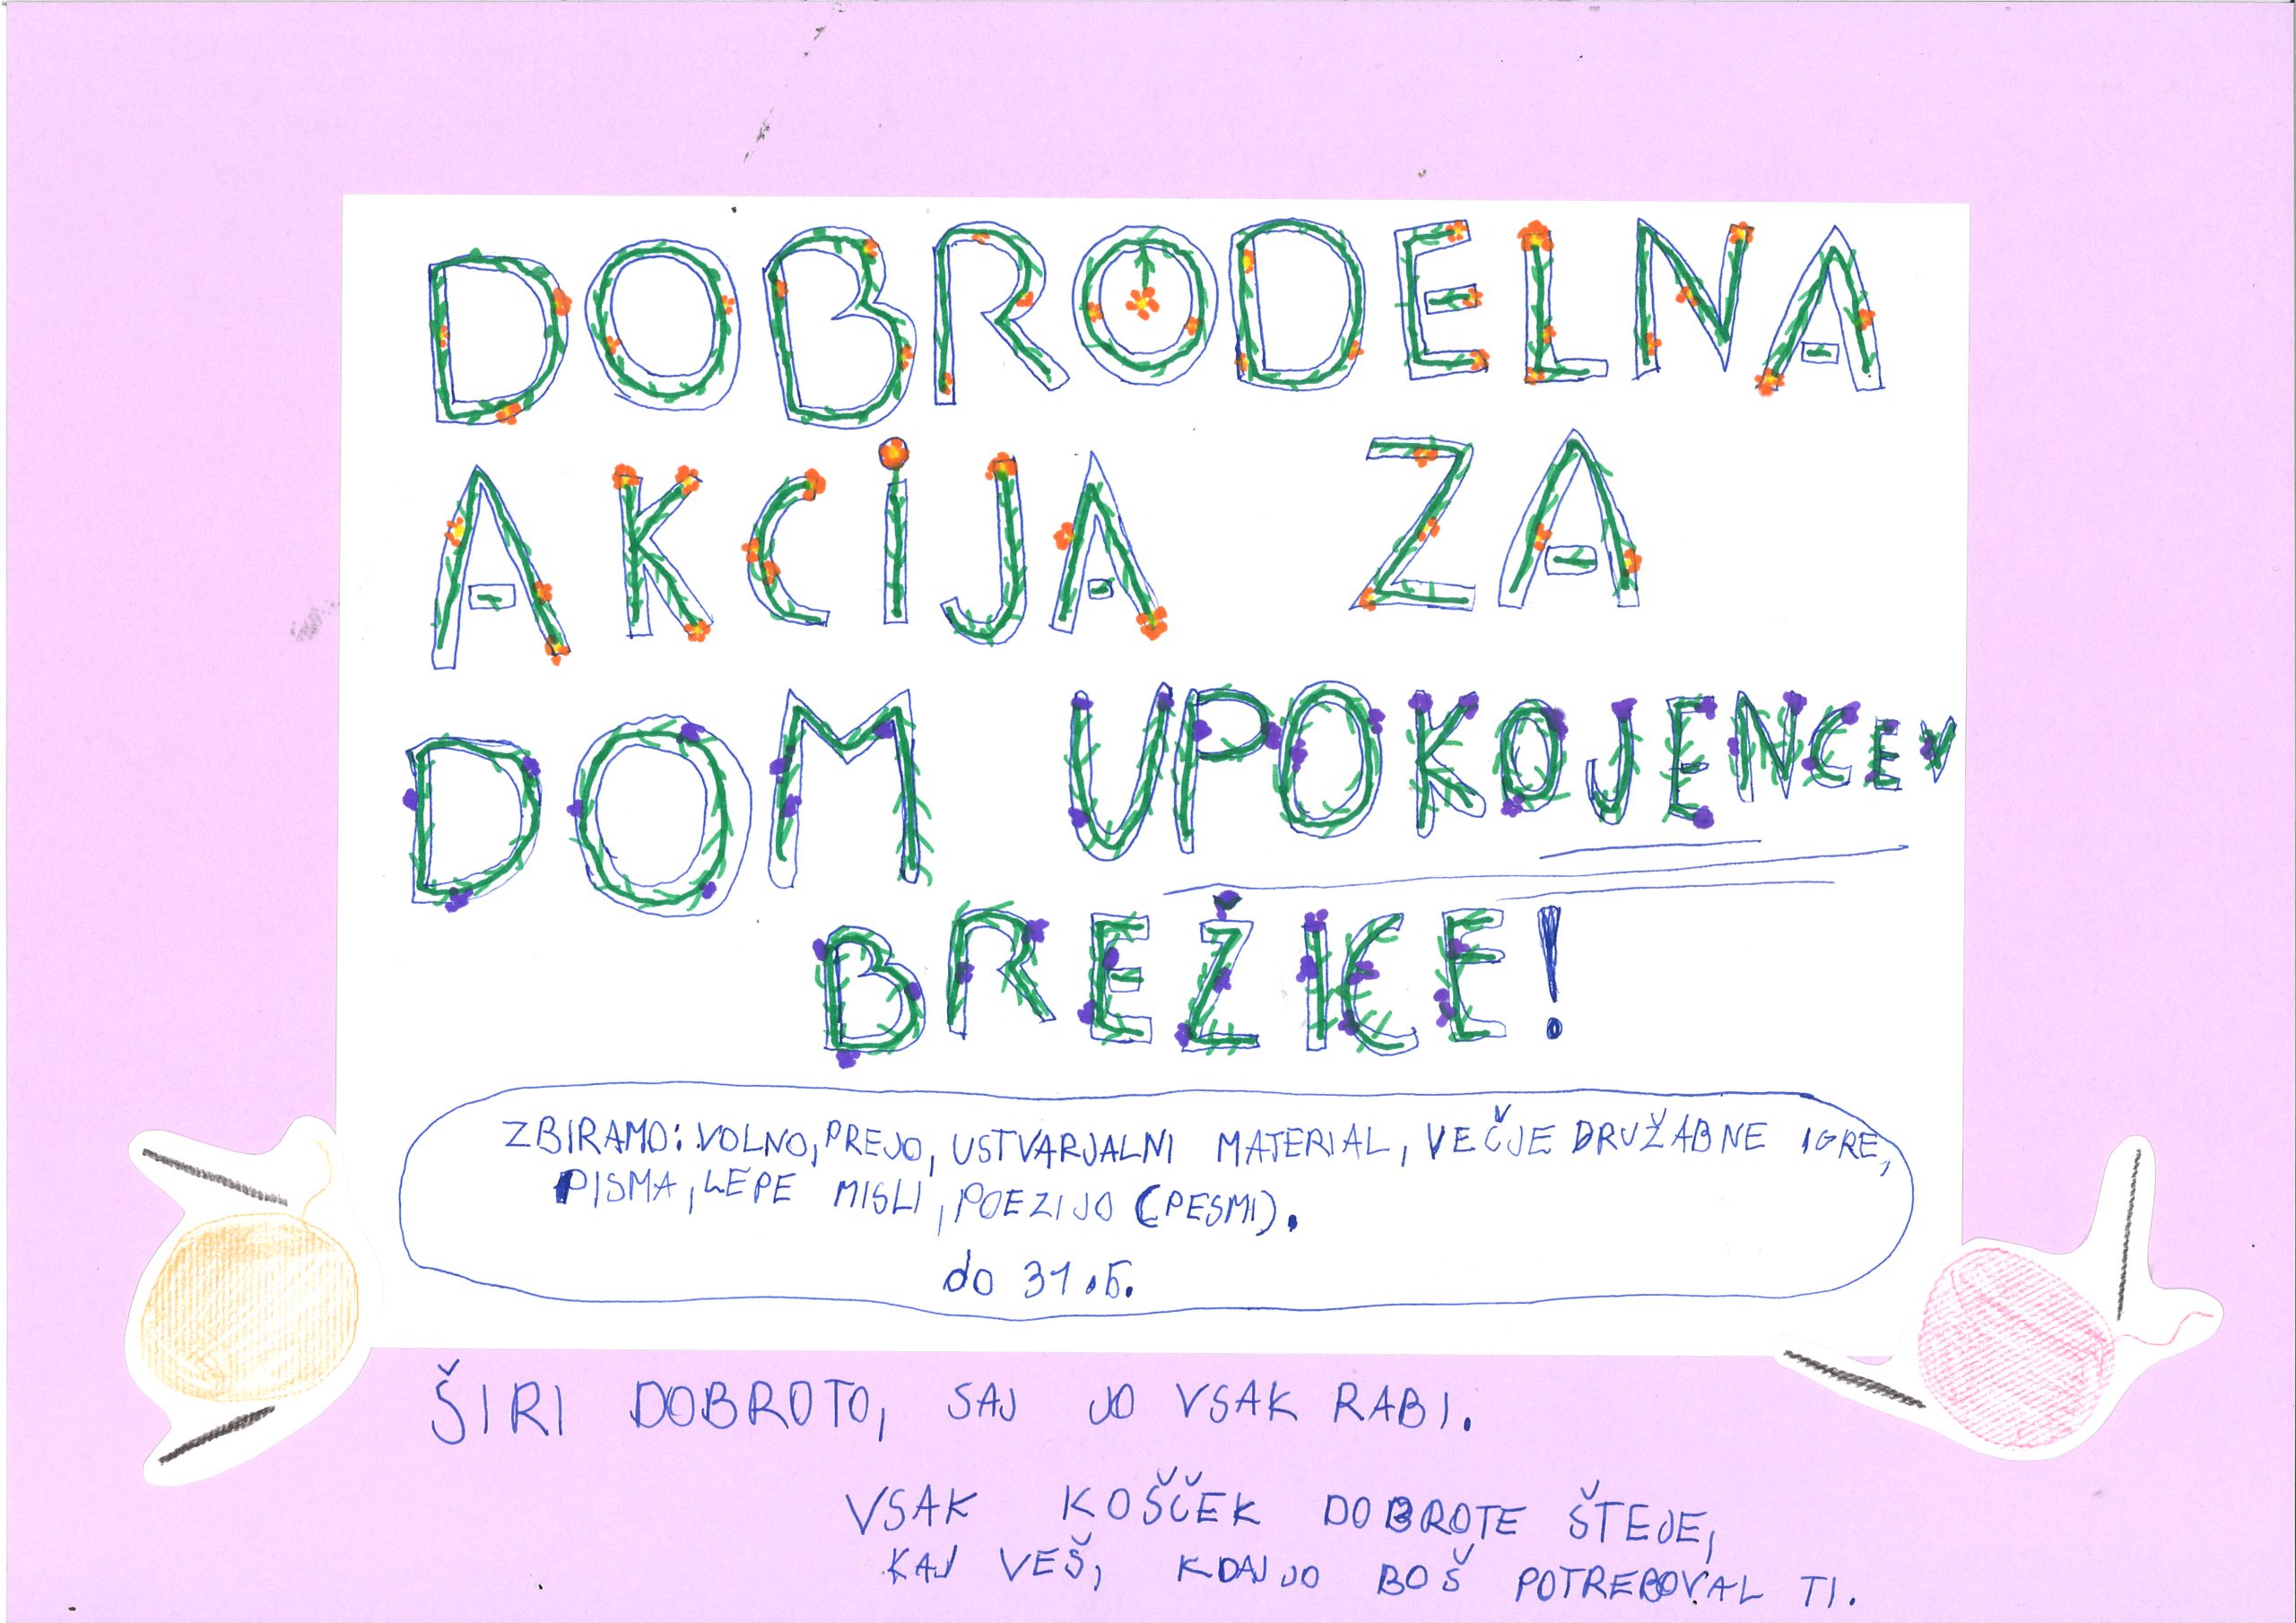 DOBRODELNA
AKCIJA ZA
DOM UPOKOJENCEV
BREŽICE!
ZBIRAMO: VOLNO, PREJO, USTVARJALNI MATERIAL, VEČJE DRUŽABNE IGRE,
PISMA, LEPE MISLI, POEZIJO (PESMI).
do 31.5.
ŠIRI DOBROTO, SAJ JO VSAK RABI.
VSAK KOŠČEK DOBROTE ŠTEJE,
KAJ VEŠ, KDAJ JO BOŠ POTREBOVAL TI.